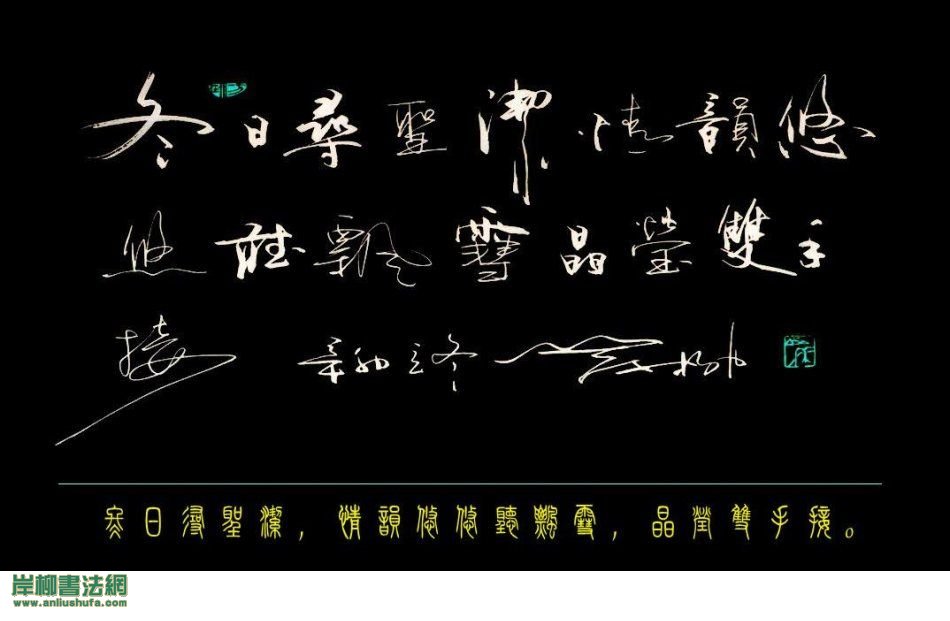 冬日尋聖潔情韻悠
悠聽飄雪晶瑩雙手
接 辛卯之冬 岸柳
冬日尋聖潔，情韻悠悠聽飄雪，晶瑩雙手接。
岸柳書法網
www.anliushufa.com